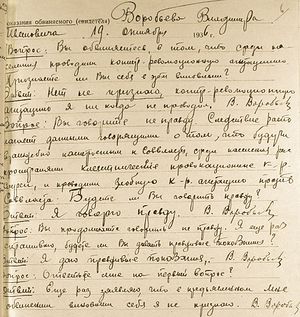 показания обвиняемого (свидетеля) Воробьева Владимира
Ивановича 19 октября 1936 г.
Вопрос: Вы обвиняетесь в том, что среди на-
селения проводили контр-революционную агитацию
признаете ли Вы себя в этом виновным?
Ответ: Нет не признаю, контр-революционную
агитацию я не когда не проводил. В. Воробьев
Вопрос: Вы говорите не правду. Следствие расп-
лагает данными говорящими о том, что будучи
враждебно настроенным к Соввласти, среди населения рас-
пространяли клеветнические провокационные к-р.
и проводили злобную к-р. агитацию против
Соввласти. Будете ли Вы говорить правду?
Ответ: Я говорю правду. В. Воробьев
Вопрос: Вы продолжаете говорить не правду. Я еще раз
спрашиваю будете ли Вы давать правдивые показания?
Ответ: Я даю правдивые показания. В. Воробьев
Вопрос: Ответьте еще на первый вопрос?
Ответ: Еще раз заявляю что в предъявленном мне
обвинении виновным себя я не признаю. В. Воробьев